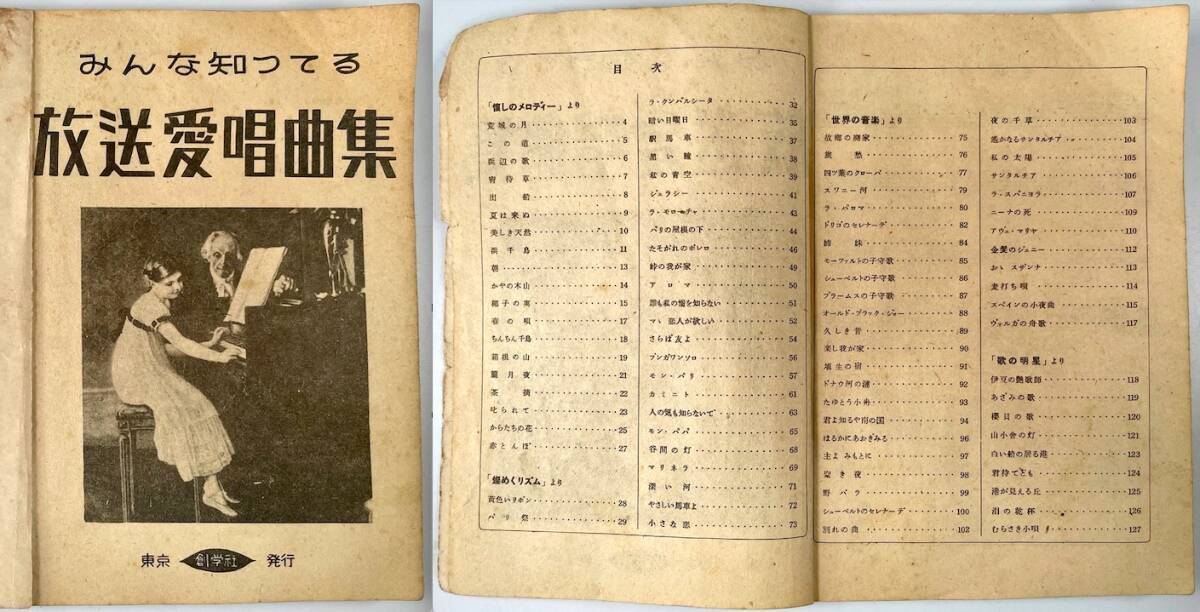 みんな知つてる
放送愛唱曲集
東京 創学社 発行
目次
「懐しのメロディー」より
荒城の月 4
この道 5
浜辺の歌 6
宵待草 7
出船 8
夏は来ぬ 9
美しき天然 10
浜千鳥 11
朝 13
かやの木山 14
椰子の実 15
春の唄 17
ちんちん千鳥 18
箱根の山 19
朧月夜 21
茶摘 22
叱られて 23
からたちの花 25
赤とんぼ 27
「煌めくリズム」より
黄色いリボン 28
パリ祭 29
ラ・クンパルシータ 32
暗い日曜日 35
駅馬車 37
黒い瞳 38
私の青空 39
ジェラシー 41
ラ・モローチャ 43
パリの屋根の下 44
たそがれのボレロ 46
峠の我が家 49
アロマ 50
誰も私の悩を知らない 51
マヽ恋人が欲しい 52
さらば友よ 54
ブンガワンソロ 56
モン・パリ 57
カミニト 61
人の気も知らないで 63
モン・パパ 65
谷間の灯 68
マリネラ 69
深い河 71
やさしい馬車よ 72
小さな恋 73
「世界の音楽」より
故郷の廃家 75
旅愁 76
四ツ葉のクローバ 77
スワニー河 79
ラ・パロマ 80
ドリゴのセレナーデ 82
姉妹 84
モーツァルトの子守歌 85
シューベルトの子守歌 86
ブラームスの子守歌 87
オールド・ブラック・ジョー 88
久しき昔 89
楽し我が家 90
埴生の宿 91
ドナウ河の漣 92
たゆとう小舟 93
君よ知るや南の国 94
はるかにあおぎみる 96
主よみもとに 97
聖き夜 98
野バラ 99
シューベルトのセレナーデ 100
別れの曲 102
夜の千草 103
遙かなるサンタルチア 104
私の太陽 105
サンタルチア 106
ラ・スパニヨラ 107
ニーナの死 109
アヴェ・マリヤ 110
金髪のジェニー 112
おゝスザンナ 113
麦打ち唄 114
スペインの小夜曲 115
ヴォルガの舟歌 117
「歌の明星」より
伊豆の艶歌師 118
あざみの歌 119
櫻貝の歌 120
山小舎の灯 121
白い船の居る港 123
君待てども 124
港が見える丘 125
泪の乾杯 126
むらさき小唄 127